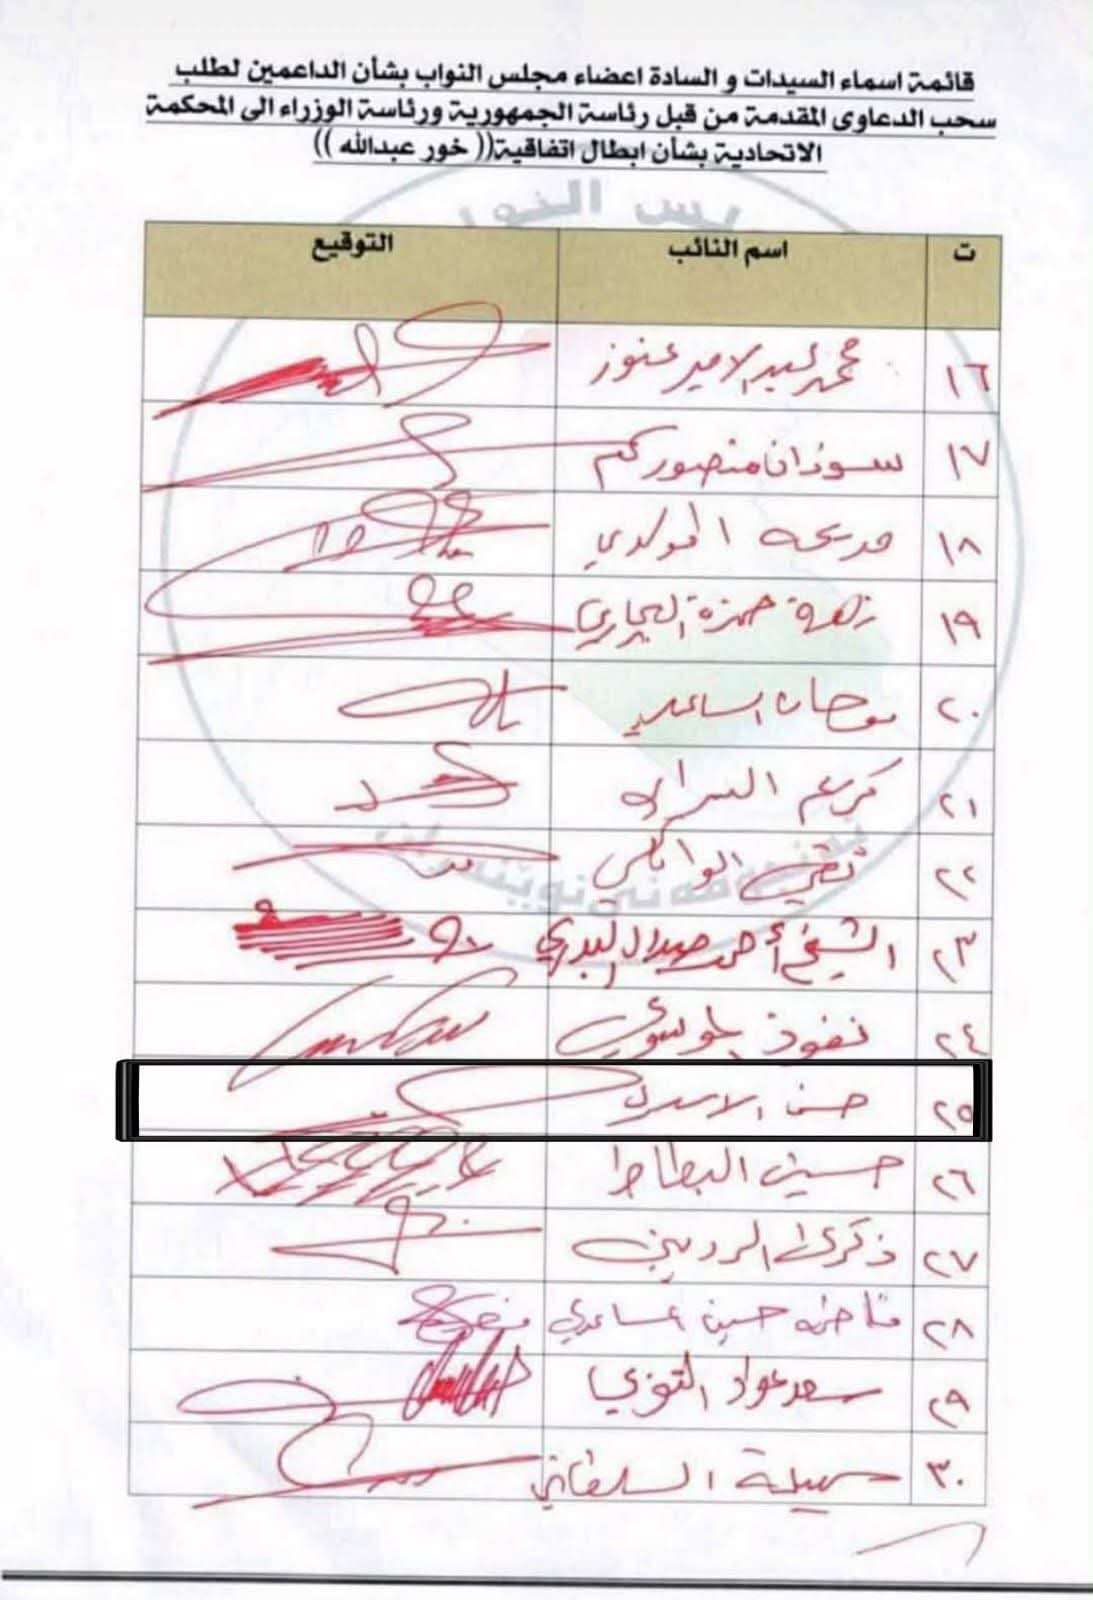 قائمة اسماء السيدات و السادة اعضاء مجلس النواب بشأن الداعمين لطلب
سحب الدعاوى المقدمة من قبل رئاسة الجمهورية ورئاسة الوزراء الى المحكمة
الاتحادية بشأن ابطال اتفاقية(( خور عبدالله ))
ت اسم النائب التوقيع
١٦ محمد عبد الامير عنوز
١٧ سوزان منصور كم
١٨ مديحه الموسوي
١٩ زهرة حمزة البجاري
٢٠ الساعدي
٢١ كريم السراي
٢٢ تقي الوائلي
٢٣ الشيخ أحمد صلال البدري
٢٤ نفوذ الموسوي
٢٥ حسن الاسدي
٢٦ حسين البطاط
٢٧ ذكرى الرديني
٢٨ فاطمه حسين
٢٩ سعد عواد التوبي
٣٠ سهيلة السلطاني